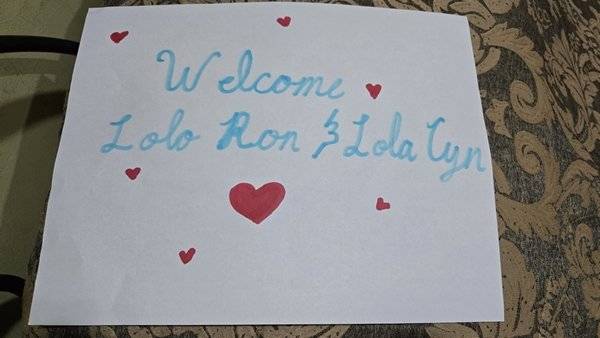 Welcome
Lolo Ron & Lola Cyn